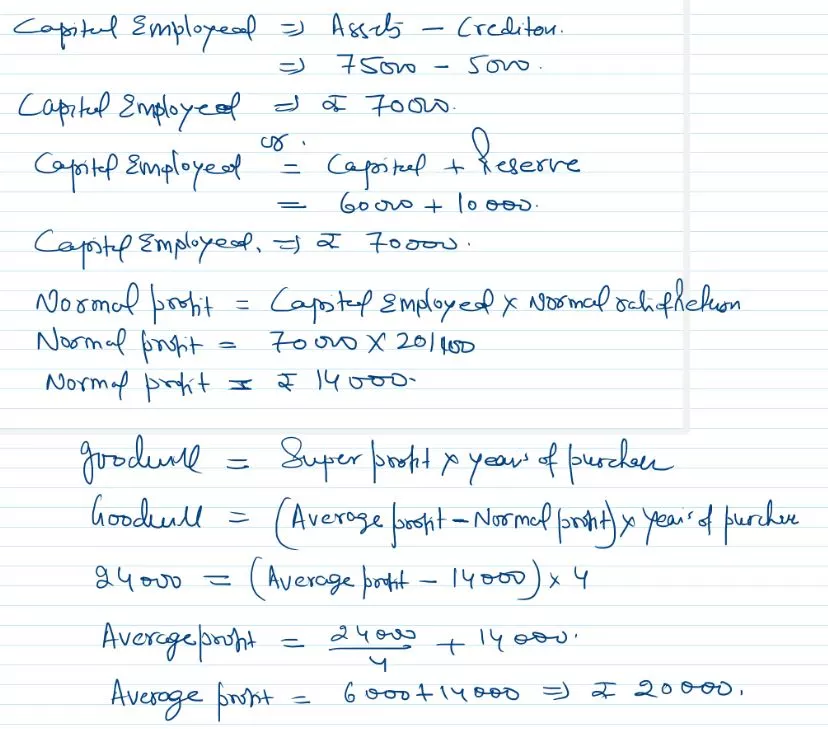 Capital Employed ⇒ Assets – Creditors.
⇒ 75000 – 5000.
Capital Employed ⇒ ₹ 70000.
or.
Capital Employed = Capital + Reserve
= 60000 + 10000.
Capital Employed. ⇒ ₹ 70000.
Normal profit = Capital Employed × Normal rate of Return
Normal profit = 70000 × 20/100
Normal profit = ₹ 14000.
Goodwill = Super profit × years of purchase
Goodwill = (Average profit – Normal profit) × years of purchase
24000 = (Average profit – 14000) × 4
Average profit = 24000/4 + 14000.
Average profit = 6000 + 14000 ⇒ ₹ 20000.